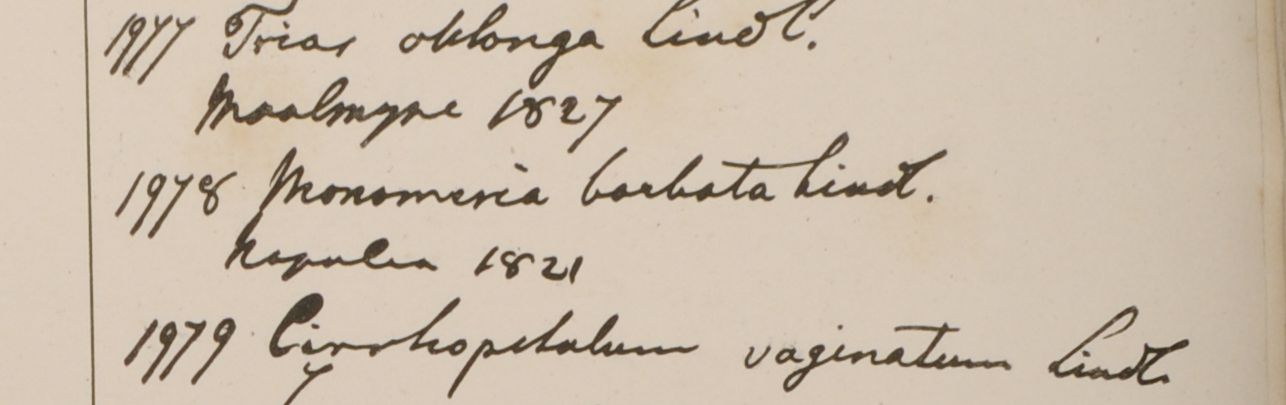 1977 Trias oblonga Lindl.
Moalmyne 1827
1978 Monomeria barbata Lindl.
Napalia 1821
1979 Cirrhopetalum vaginatum Lindl.